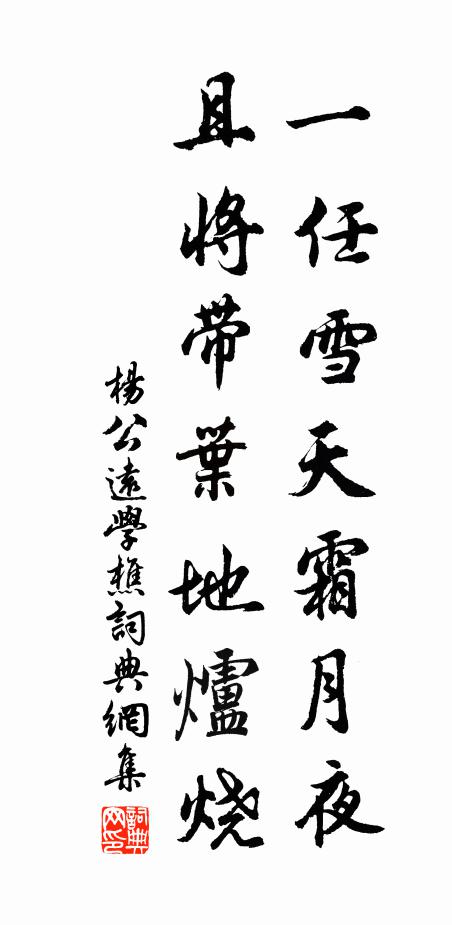 一任雪天霜月夜
且將带葉地爐烧
楊公遠學樵詞典網集
詞典网印